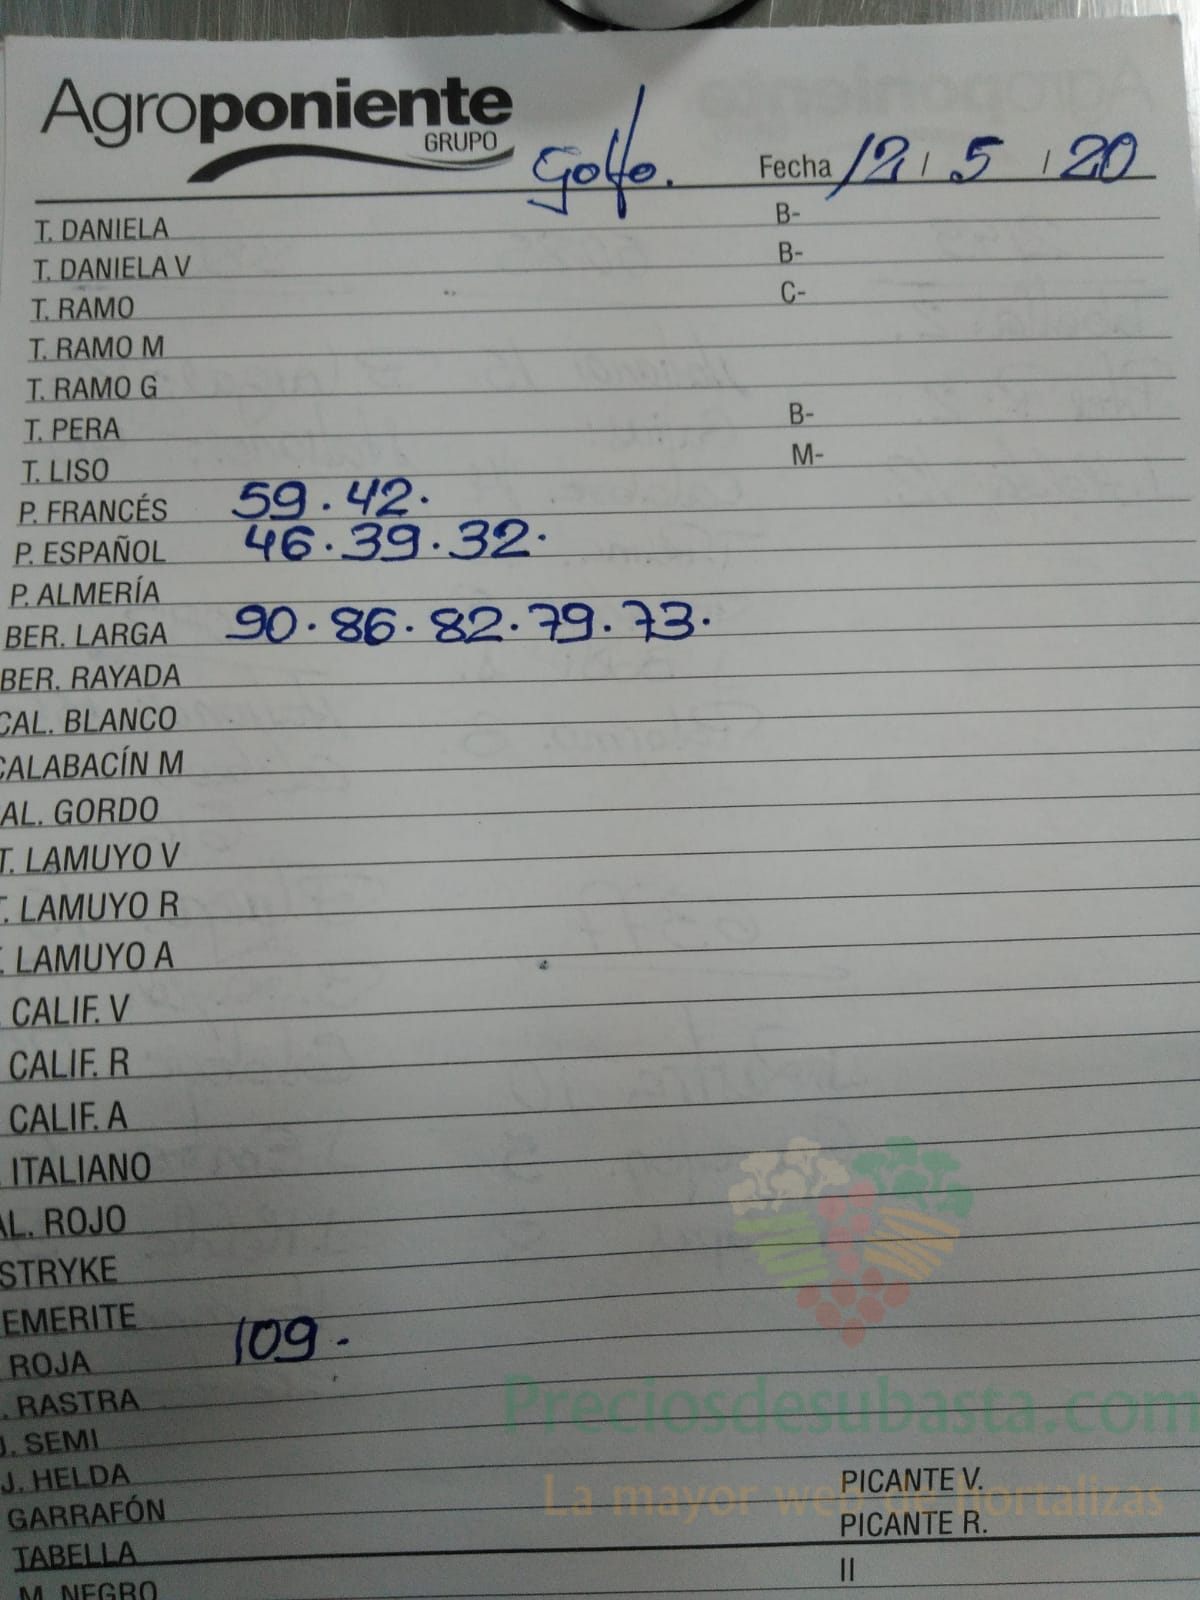 Agroponiente
GRUPO
Golfo. Fecha 12 / 5 / 20
T. DANIELA B-
T. DANIELA V B-
T. RAMO C-
T. RAMO M
T. RAMO G
T. PERA B-
T. LISO M-
P. FRANCÉS 59.42.
P. ESPAÑOL 46.39.32.
P. ALMERÍA
BER. LARGA 90.86.82.79.73.
BER. RAYADA
CAL. BLANCO
CALABACÍN M
AL. GORDO
T. LAMUYO V
. LAMUYO R
. LAMUYO A
CALIF. V
CALIF. R
CALIF. A
ITALIANO
AL. ROJO
STRYKE
EMERITE
ROJA 109.
. RASTRA
J. SEMI
J. HELDA PICANTE V.
GARRAFÓN PICANTE R.
TABELLA II
M. NEGRO
Preciosdesubasta.com
La mayor web de hortalizas